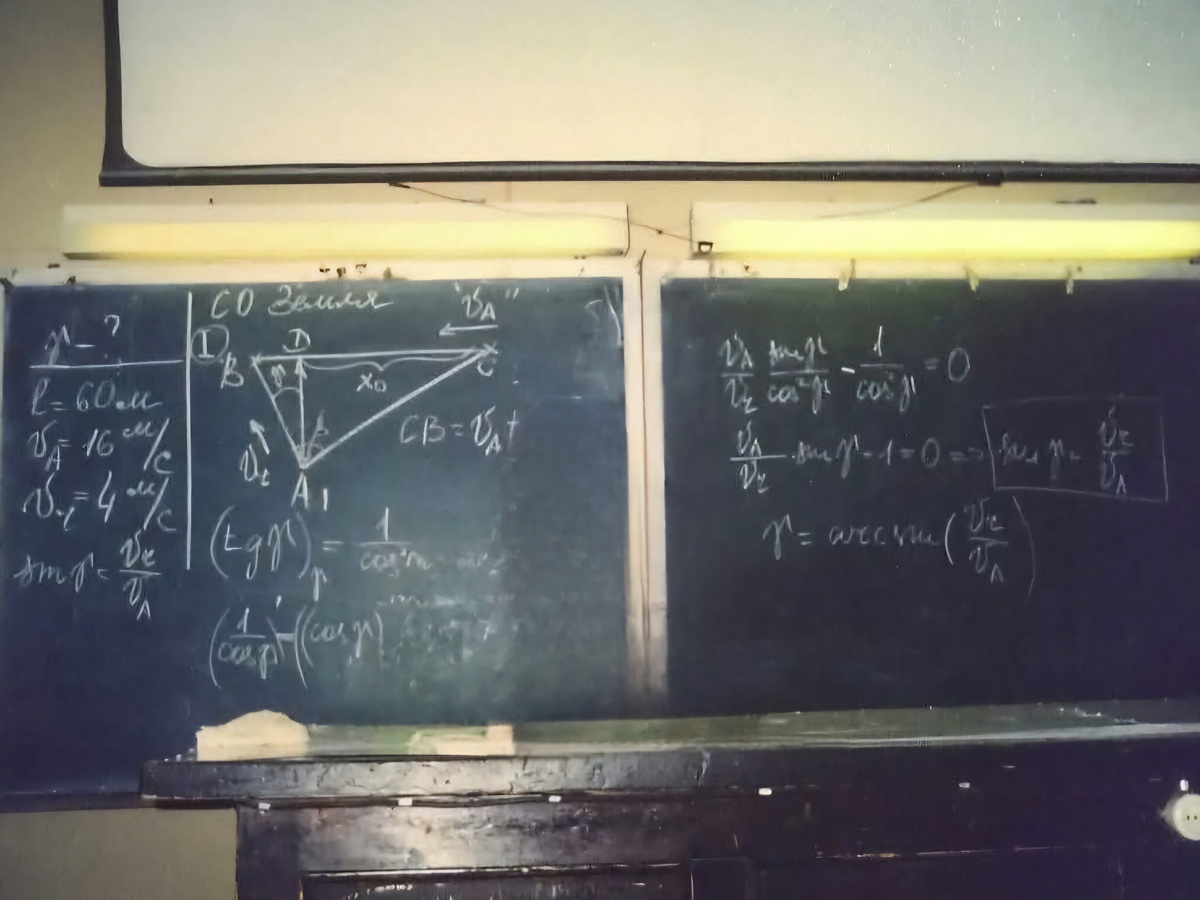 γ - ?
l = 60 м
v_A = 16 м/с
v_г = 4 м/с
sin γ = v_г / v_A
СО Земля
"v_A"
I
B D C
γ x₀
v_г
CB = v_A t
A
(tg γ)'_γ = 1 / cos²γ
(1 / cos γ)' = ((cos γ)
v_A / v_г · sin γ / cos²γ - 1 / cos²γ = 0
v_A / v_г · sin γ - 1 = 0 => sin γ = v_г / v_A
γ = arcsin (v_г / v_A)